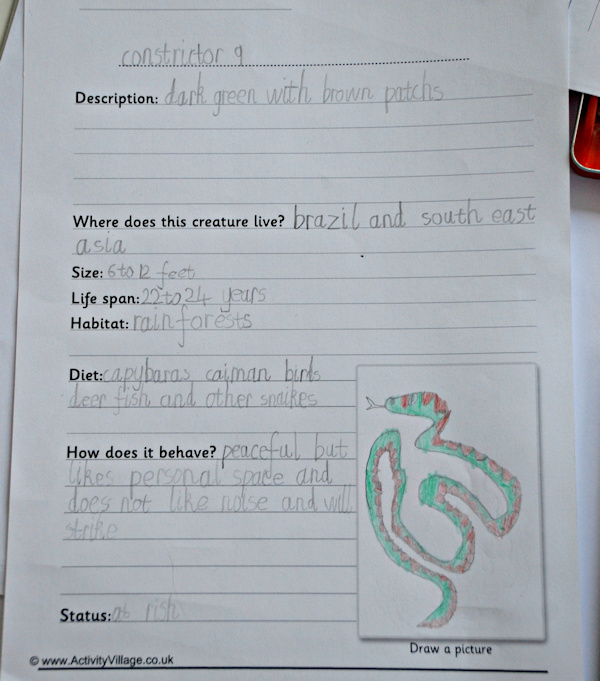 constrictor 9
Description: dark green with brown patchs
Where does this creature live? brazil and south east
asia
Size: 6 to 12 feet
Life span: 22 to 24 years
Habitat: rainforests
Diet: capybaras caiman birds
deer fish and other snaikes
How does it behave? peaceful but
likes personal space and
does not like noise and will
strike
Status:
Draw a picture
© www.ActivityVillage.co.uk